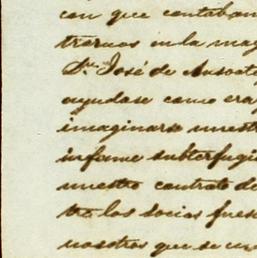 con que contaban
trernos en la mag
Dn. José de Ansoate
ayudase como era
imaginarse nuestr
infame subterfugi
nuestro contrato de
tra los socios fues
nosotros que se un